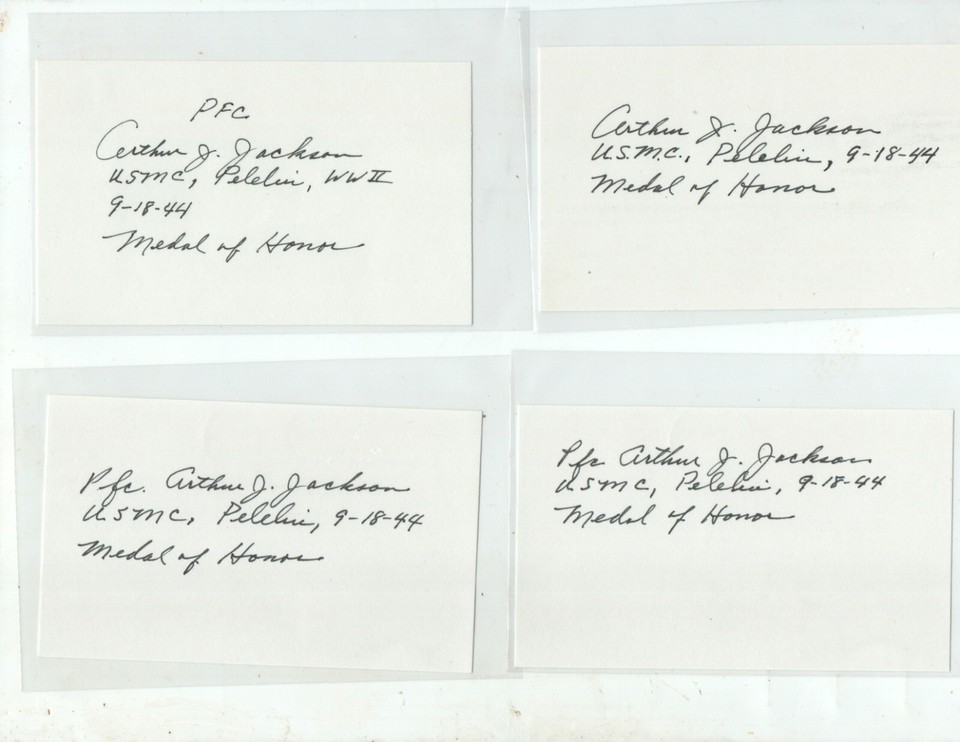 PFC
Arthur J. Jackson
USMC, Peleliu, WW II
9-18-44
Medal of Honor
Arthur J. Jackson
U.S.M.C., Peleliu, 9-18-44
Medal of Honor
Pfc. Arthur J. Jackson
USMC, Peleliu, 9-18-44
Medal of Honor
Pfc Arthur J. Jackson
USMC, Peleliu, 9-18-44
Medal of Honor